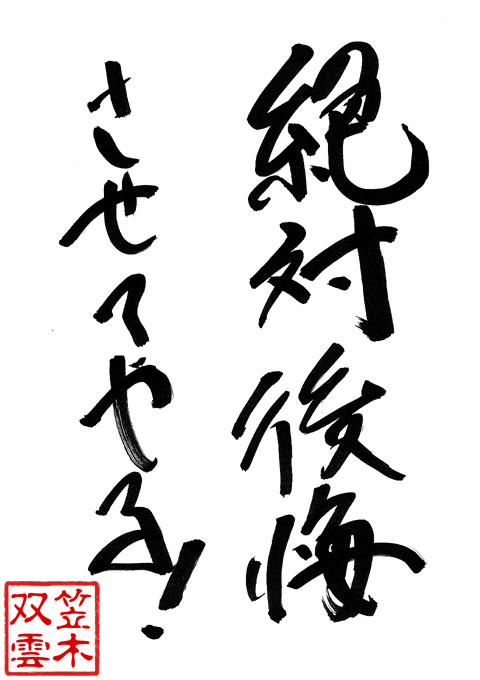 絶対後悔
させてやる!
笠木
双雲